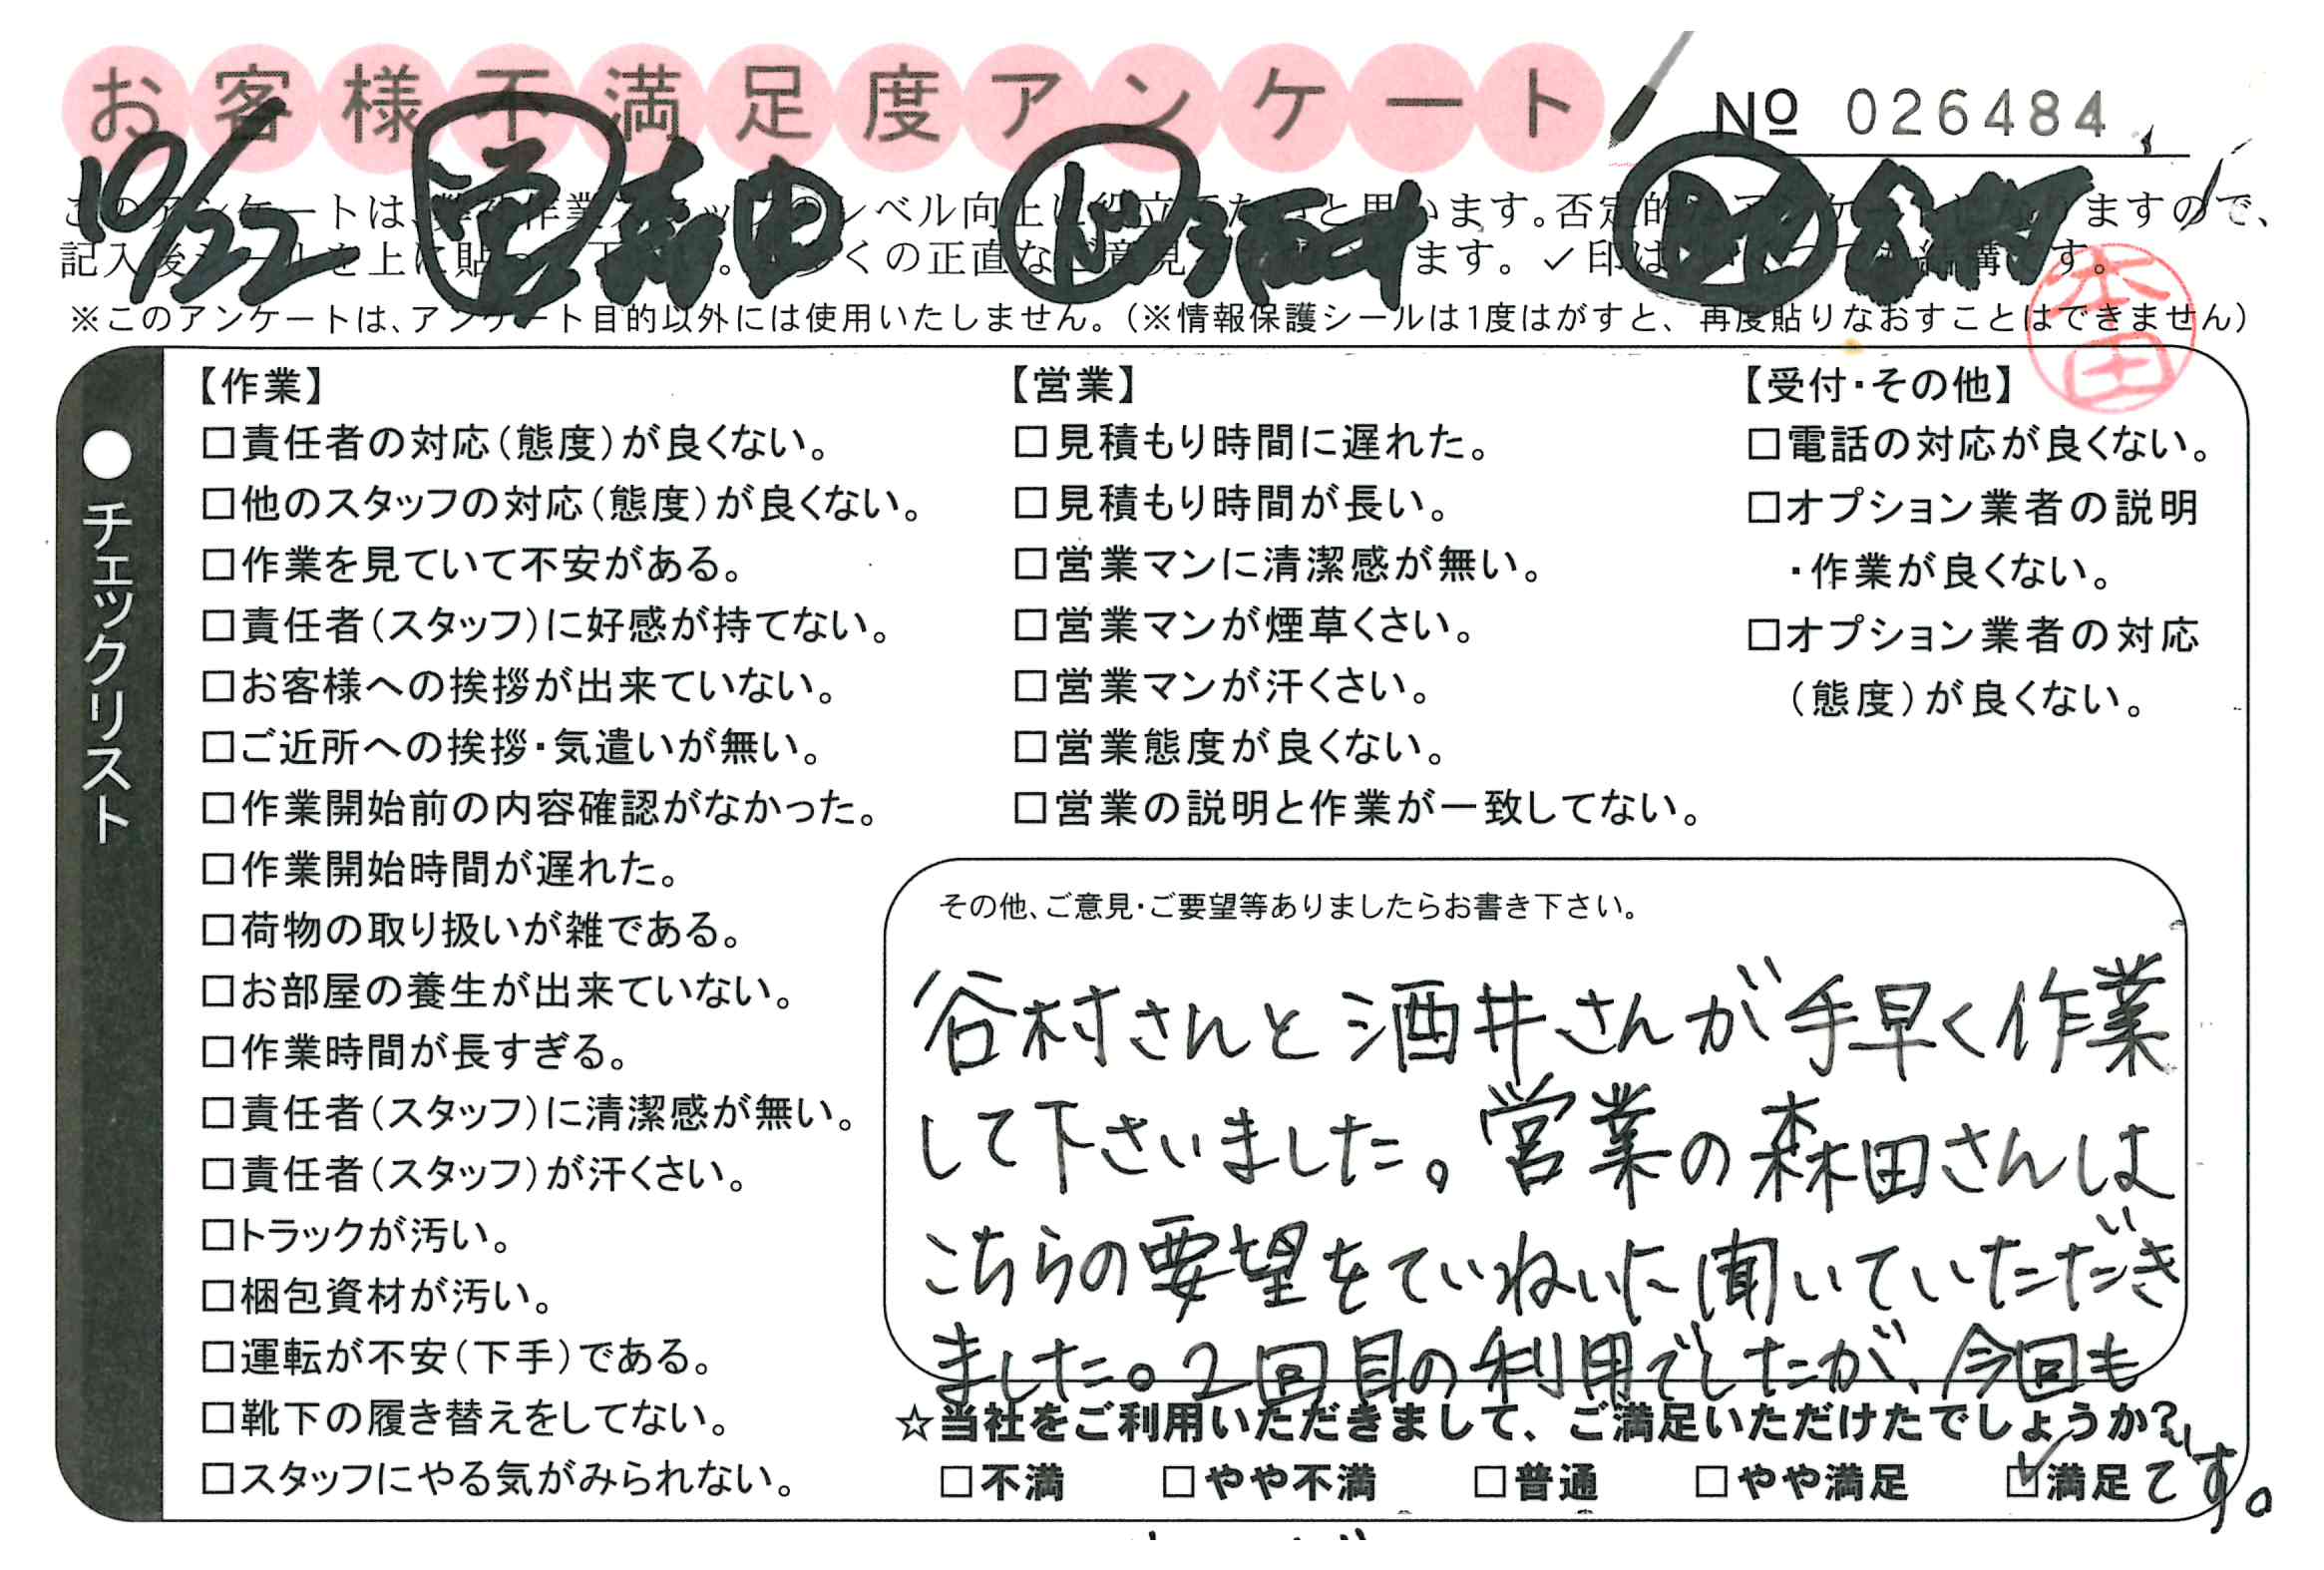 お客様不満足度アンケート
№ 026484
10/22 営 森田 ド 酒井 谷村
※このアンケートは、アンケート目的以外には使用いたしません。(※情報保護シールは1度はがすと、再度貼りなおすことはできません)
本田
●チェックリスト
【作業】
□責任者の対応(態度)が良くない。
□他のスタッフの対応(態度)が良くない。
□作業を見ていて不安がある。
□責任者(スタッフ)に好感が持てない。
□お客様への挨拶が出来ていない。
□ご近所への挨拶・気遣いが無い。
□作業開始前の内容確認がなかった。
□作業開始時間が遅れた。
□荷物の取り扱いが雑である。
□お部屋の養生が出来ていない。
□作業時間が長すぎる。
□責任者(スタッフ)に清潔感が無い。
□責任者(スタッフ)が汗くさい。
□トラックが汚い。
□梱包資材が汚い。
□運転が不安(下手)である。
□靴下の履き替えをしてない。
□スタッフにやる気がみられない。
【営業】
□見積もり時間に遅れた。
□見積もり時間が長い。
□営業マンに清潔感が無い。
□営業マンが煙草くさい。
□営業マンが汗くさい。
□営業態度が良くない。
□営業の説明と作業が一致してない。
【受付・その他】
□電話の対応が良くない。
□オプション業者の説明
・作業が良くない。
□オプション業者の対応
(態度)が良くない。
その他、ご意見・ご要望等ありましたらお書き下さい。
谷村さんと酒井さんが手早く作業
して下さいました。営業の森田さんは
こちらの要望をていねいに聞いていただき
ました。2回目の利用でしたが、今回も
☆当社をご利用いただきまして、ご満足いただけたでしょうか?
□不満 □やや不満 □普通 □やや満足 ☑満足です。